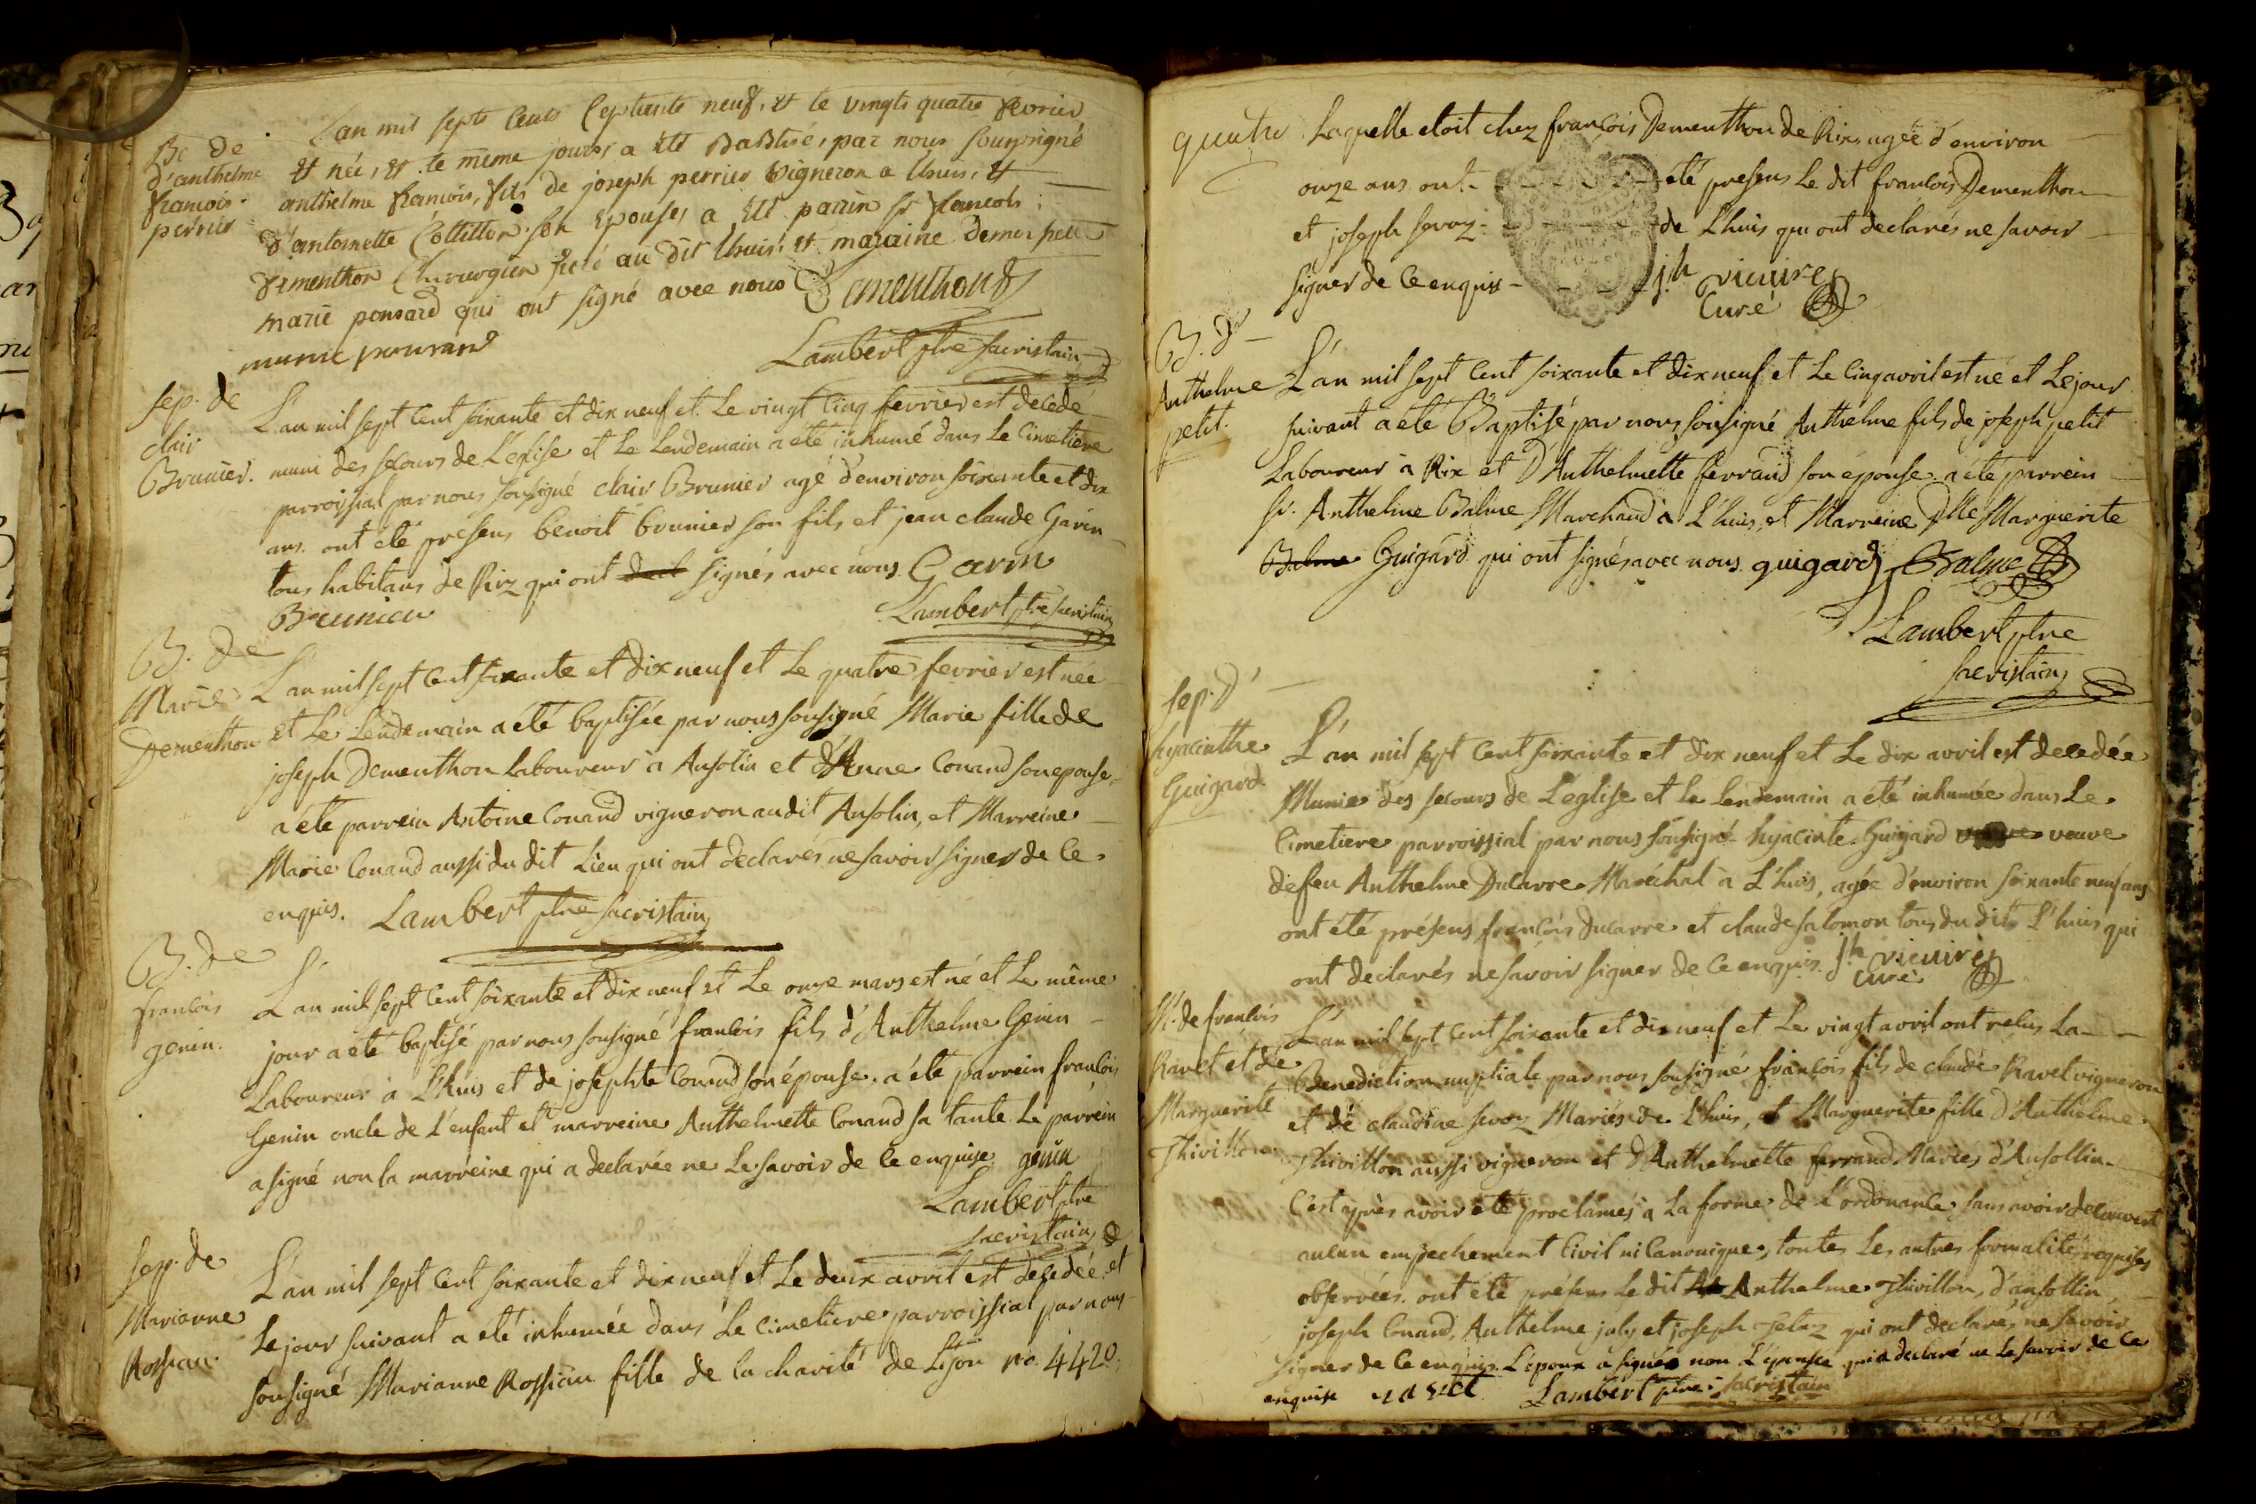 Bt de
d'anthelme
francois
perrier
Lan mil septs Cents Septante neuf, et le vingts quatre fevrier
et né, et le même jours a été Babtisé, par nous soussigné
anthelme francois, fils de joseph perrier vigneron a Lhuis, et
d'antoinette Cottitton son epouses a été parrin sr francois
dementhon Chirurgien juré au dit Lhuis et maraine demoiselle
marie ponsard qui ont signé avec nous Dementhon
marie ponsard
Lambert ptre sacristain
sep. de
clair
Brunier.
L'an mil sept cent soixante et dix neuf et Le vingt Cinq fevrier est decedé
muni des secours de L'eglise et Le Lendemain a été inhumé dans Le Cimetiere
parroissial par nous sousigné clair Brunier agé d'environ soixante et dix
ans. ont été presens benoit brunier son fils et jean claude Garin
tous habitans de Rix qui ont signés avec nous. Garin
Brunier
Lambert ptre sacristain
B. de
Marie
Dementhon
L'an mil sept cent soixante et dix neuf et Le quatre fevrier est née
et Le Lendemain a été baptisée par nous sousigné Marie fille de
joseph Dementhon Laboureur a Ansolin et d'Anne Conand son epouse
a été parrein Antoine Conand vigneron audit Ansolin, et Marreine
Marie Conand aussi du dit Lieu qui ont declarés ne savoir signer de Ce
enquis. Lambert ptre sacristain
B. de
francois
genin.
L'an mil sept cent soixante et dix neuf et Le onze mars est né et Le même
jour a été baptisé par nous sousigné francois fils d'Anthelme Genin
Laboureur à L'huis et de josephte Conand son épouse. a été parrein francois
Genin oncle de L'enfant et marreine Anthelmette Conand sa tante Le parrein
a signé non la marreine qui a declarée ne Le savoir de Ce enquise genin
Lambert ptre
sacristain
sep. de
Marianne
Rossiau.
L'an mil sept cent soixante et dix neuf et Le deux avril est decedée et
Le jour suivant a été inhumée dans Le cimetiere parroissial par nous
sousigné Marianne Rossiau fille de la charité de Lyon no. 4420.
quatre
Laquelle etoit chez francois Dementhon de Rix, agée d'environ
onze ans. ont été presens Le dit francois Dementhon
et joseph Savoy de L'huis qui ont declarés ne savoir
signer de Ce enquis jh vicaire
Curé
B. d'
Anthelme
petit.
L'an mil sept cent soixante et dix neuf et Le cinq avril est né et Le jour
suivant a été Baptisé par nous sousigné Anthelme fils de joseph petit
Laboureur à Rix et d'Anthelmette ferrand son épouse. a été parrein
sr. Anthelme Balme Marchand à L'huis, et Marreine Dlle Marguerite
Balme Guigard qui ont signés avec nous guigard Balme
Lambert ptre
sacristain
sep. d'
hyacinthe
Guigard
L'an mil sept cent soixante et dix neuf et Le dix avril est decedée
Munie des secours de L'eglise et Le Lendemain a été inhumée dans Le
Cimetiere parroissial par nous sousigné hyacinte Guigard veuve
de feu Anthelme Ducarre Maréchal à L'huis, agée d'environ soixante neuf ans
ont été présens françois Ducarre et claude salomon tous du dit L'huis qui
ont declarés ne savoir signer de Ce enquis. jh vicaire
Curé
M. de francois
Ravet et de
Marguerite
Thivillon
L'an mil sept cent soixante et dix neuf et Le vingt avril ont reçus La
Benediction nuptiale par nous sousigné françois fils de claude Ravet vigneron
et de claudine Savoy Mariés de L'huis, et Marguerite fille d'Anthelme
Thivillon aussi vigneron et d'Anthelmette ferrand Mariés d'Ansollin
C'est après avoir été proclamés à La forme de L'ordonance sans avoir decouvert
aucun empechement Civil ni Canonique, toutes Les autres formalités requises
observées. ont été présens Le dit Anthelme Thivillon, d'ansollin,
joseph Conand, Anthelme joly et joseph qui ont declarés ne savoir
signer de Ce enquis. L'epoux a signé non L'epouse qui a declaré ne Le savoir de Ce
enquise ravet Lambert ptre sacristain